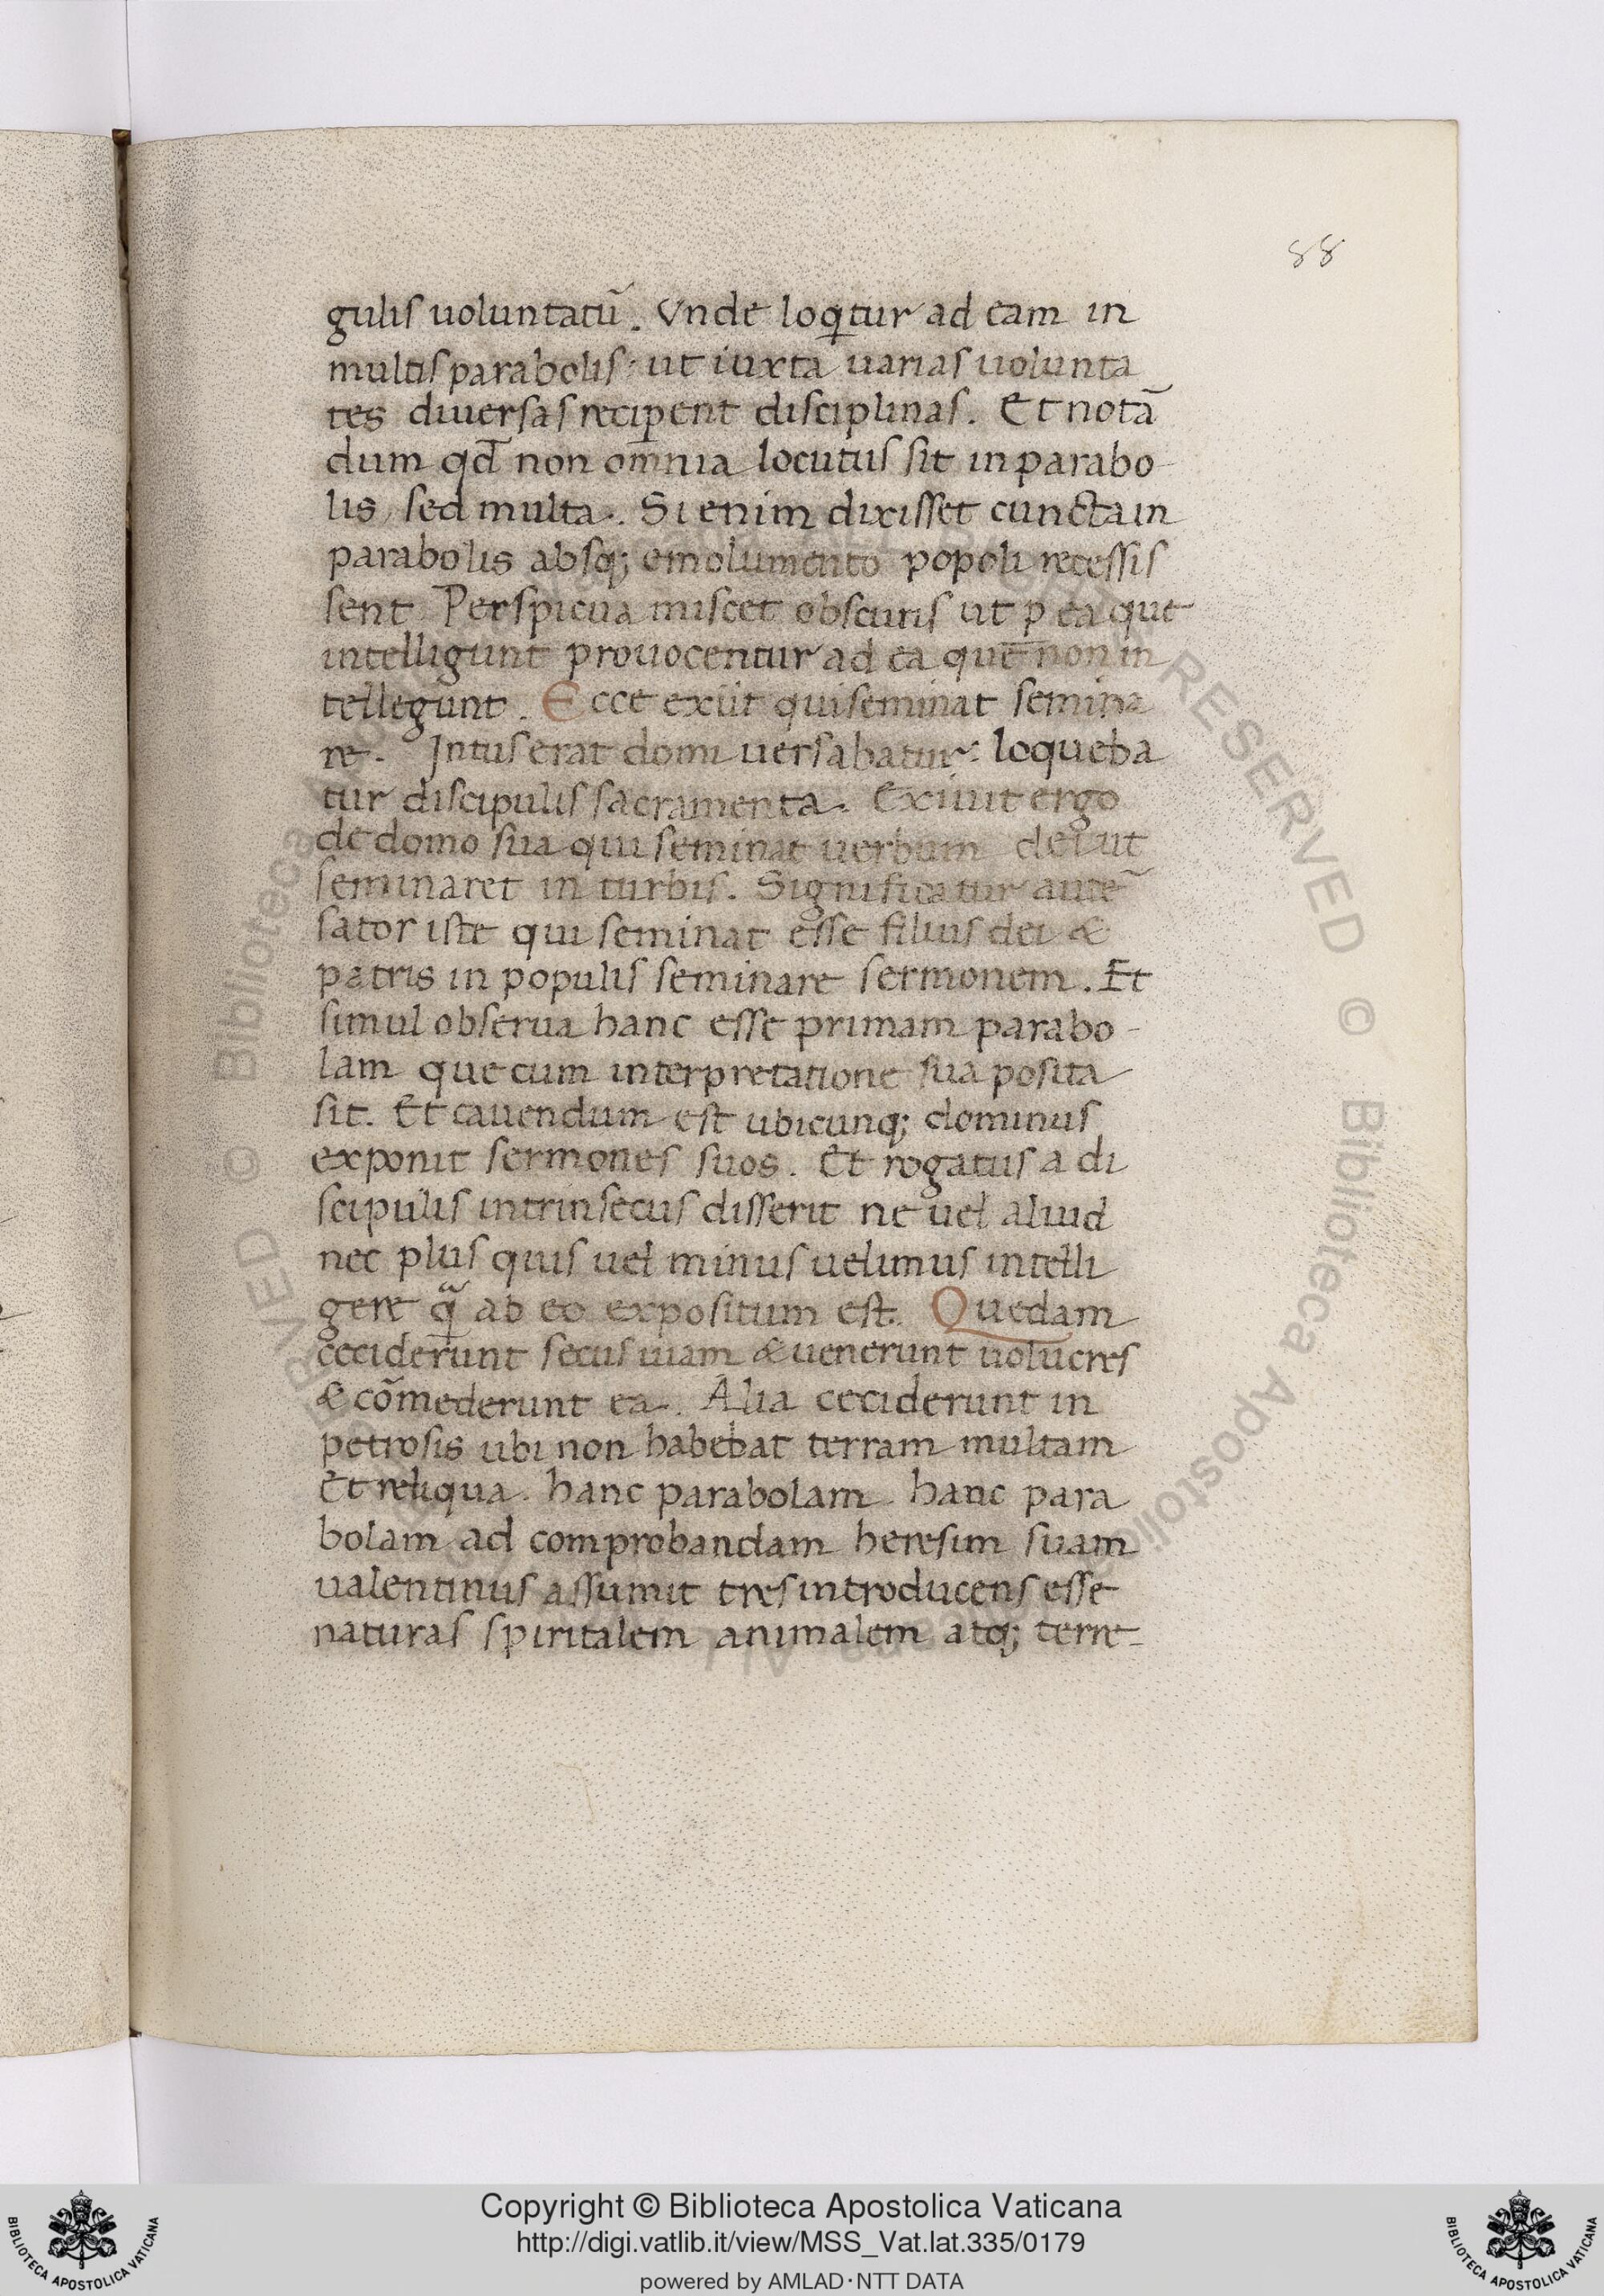 88
gulis uoluntatū. Vnde loqitur ad eam in
multis parabolis: ut iuxta uarias uolunta
tes diuersas reciꝑent disciplinas. Et notā
dum qd̄ non om̄nia locutus sit in parabo-
lis, sed multa. Si enim dixisset cuncta in
parabolis absq; emolumento popoli recessis
sent. Perspicua miscet obscuris ut ꝑ ea que
intelligunt prouocentur ad ea que non in
tellegunt. Ecce exiit qui seminat semina
re. Intus erat domi uersabatur: loqueba
tur discipulis sacramenta. Exiuit ergo
de domo sua qui seminat uerbum dei ut
seminaret in turbis. Significatur autē
sator iste qui seminat esse filius dei &
patris in populis seminare sermonem. Et
simul obserua hanc esse primam parabo-
lam que cum interpretatione sua posita
sit. Et cauendum est ubicunq; dominus
exponit sermones suos. Et rogatus a di
scipulis intrinsecus disserit ne uel aliud
nec plus quis uel minus uelimus intelli
gere qᷓ ab eo expositum est. Quedam
ceciderunt secus uiam & uenerunt uolucres
& cōmederunt ea. Alia ceciderunt in
petrosis ubi non habebat terram multam
Et reliqua. hanc parabolam hanc para
bolam ad comprobandam heresim suam
ualentinus assumit tres introducens esse
naturas spiritalem animalem atq; terre-
RESERVED © Biblioteca Apostolica
Copyright © Biblioteca Apostolica Vaticana
http://digi.vatlib.it/view/MSS_Vat.lat.335/0179
powered by AMLAD·NTT DATA
BIBLIOTECA APOSTOLICA VATICANA
BIBLIOTECA APOSTOLICA VATICANA